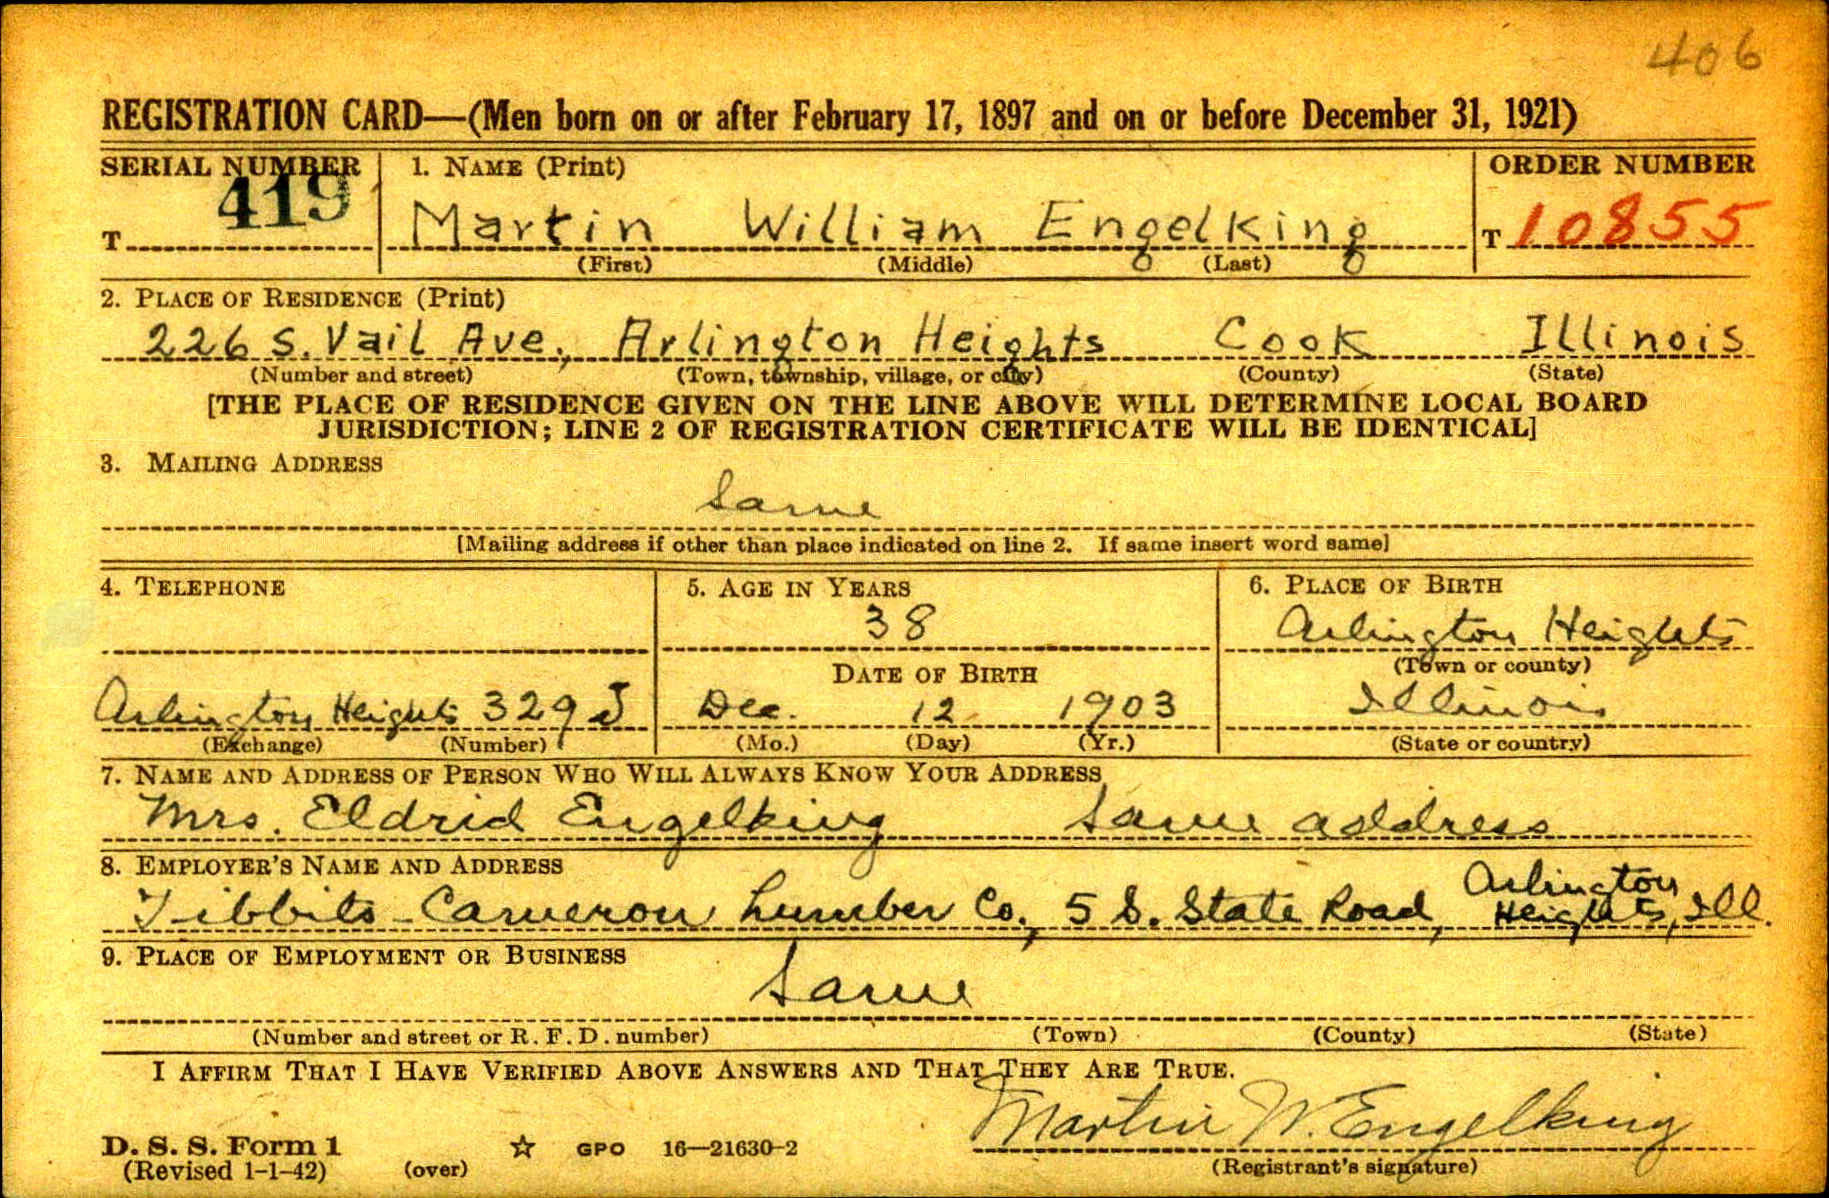 406
REGISTRATION CARD—(Men born on or after February 17, 1897 and on or before December 31, 1921)
SERIAL NUMBER 1. NAME (Print) ORDER NUMBER
T 419 Martin William Engelking T 10855
(First) (Middle) (Last)
2. PLACE OF RESIDENCE (Print)
226 S. Vail Ave., Arlington Heights Cook Illinois
(Number and street) (Town, township, village, or city) (County) (State)
[THE PLACE OF RESIDENCE GIVEN ON THE LINE ABOVE WILL DETERMINE LOCAL BOARD
JURISDICTION; LINE 2 OF REGISTRATION CERTIFICATE WILL BE IDENTICAL]
3. MAILING ADDRESS
Same
[Mailing address if other than place indicated on line 2. If same insert word same]
4. TELEPHONE 5. AGE IN YEARS 6. PLACE OF BIRTH
38 Arlington Heights
DATE OF BIRTH (Town or county)
Arlington Heights 329 J Dec. 12 1903 Illinois
(Exchange) (Number) (Mo.) (Day) (Yr.) (State or country)
7. NAME AND ADDRESS OF PERSON WHO WILL ALWAYS KNOW YOUR ADDRESS
Mrs. Eldrid Engelking Same address
8. EMPLOYER'S NAME AND ADDRESS
Tibbits-Cameron Lumber Co., 5 S. State Road, Arlington Heights, Ill.
9. PLACE OF EMPLOYMENT OR BUSINESS
Same
(Number and street or R. F. D. number) (Town) (County) (State)
I AFFIRM THAT I HAVE VERIFIED ABOVE ANSWERS AND THAT THEY ARE TRUE.
Martin W. Engelking
D. S. S. Form 1 ☆ GPO 16—21630-2
(Revised 1-1-42) (over) (Registrant's signature)